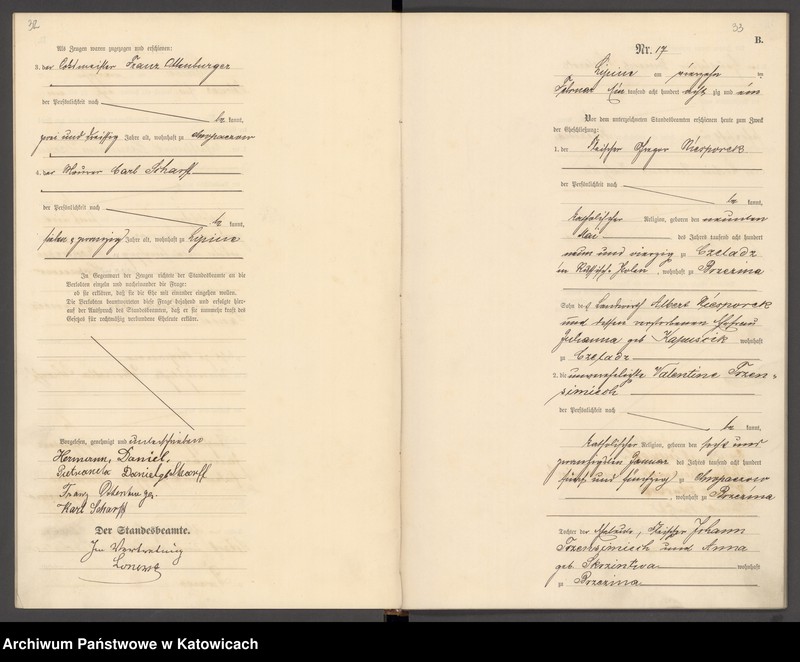 32
Als Zeugen waren zugezogen und erschienen:
3. der Franz Ottenburger
der Persönlichkeit nach
be kannt,
und dreißig Jahre alt, wohnhaft zu
4. der Maurer Carl Scharff
der Persönlichkeit nach
be kannt,
Jahre alt, wohnhaft zu Lipine
In Gegenwart der Zeugen richtete der Standesbeamte an die
Verlobten einzeln und nacheinander die Frage:
ob sie erklären, daß sie die Ehe mit einander eingehen wollen.
Die Verlobten beantworteten diese Frage bejahend und erfolgte hier-
auf der Ausspruch des Standesbeamten, daß er sie nunmehr kraft des
Gesetzes für rechtmäßig verbundene Eheleute erkläre.
Vorgelesen, genehmigt und unterschrieben
Hermann Daniel
Daniel geb Scharff
Franz
Karl Scharff
Der Standesbeamte.
In Vertretung
33
B.
Nr. 17
Lipine am vierzehn ten
Februar Ein tausend acht hundert acht zig und ein
Vor dem unterzeichneten Standesbeamten erschienen heute zum Zweck
der Eheschließung:
1. der Gregor Niesporek
der Persönlichkeit nach
be kannt,
katholischer Religion, geboren den neunten
Mai des Jahres tausend acht hundert
neun und vierzig zu Czeladz
in Polen, wohnhaft zu Brzezina
Sohn des Albert Niesporek
und dessen verstorbenen Ehefrau
Julianna geb Kapuscik wohnhaft
zu Czeladz
2. die unverehelichte Valentine
der Persönlichkeit nach
be kannt,
katholischer Religion, geboren den sechs und
zwanzigsten Januar des Jahres tausend acht hundert
und fünfzig zu
, wohnhaft zu Brzezina
Tochter des Johann
und Anna
geb. wohnhaft
zu Brzezina
Archiwum Państwowe w Katowicach